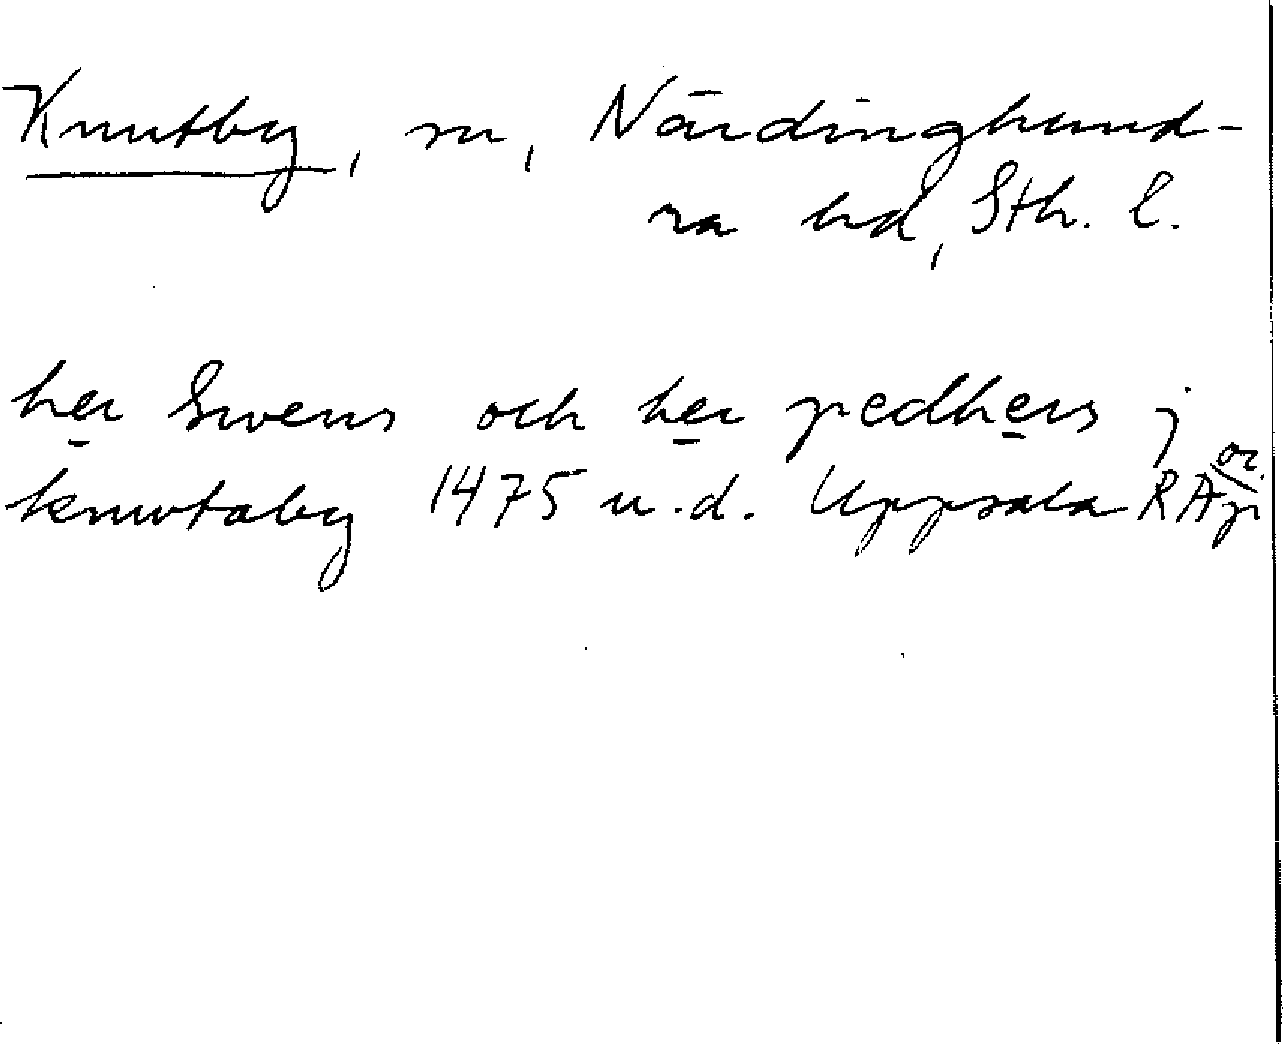 Knutby, sn, Närdinghund-
ra hd, Sth. l.
her Swens och her pedhers j
knwtaby 1475 u.d. Uppsala RA or. p